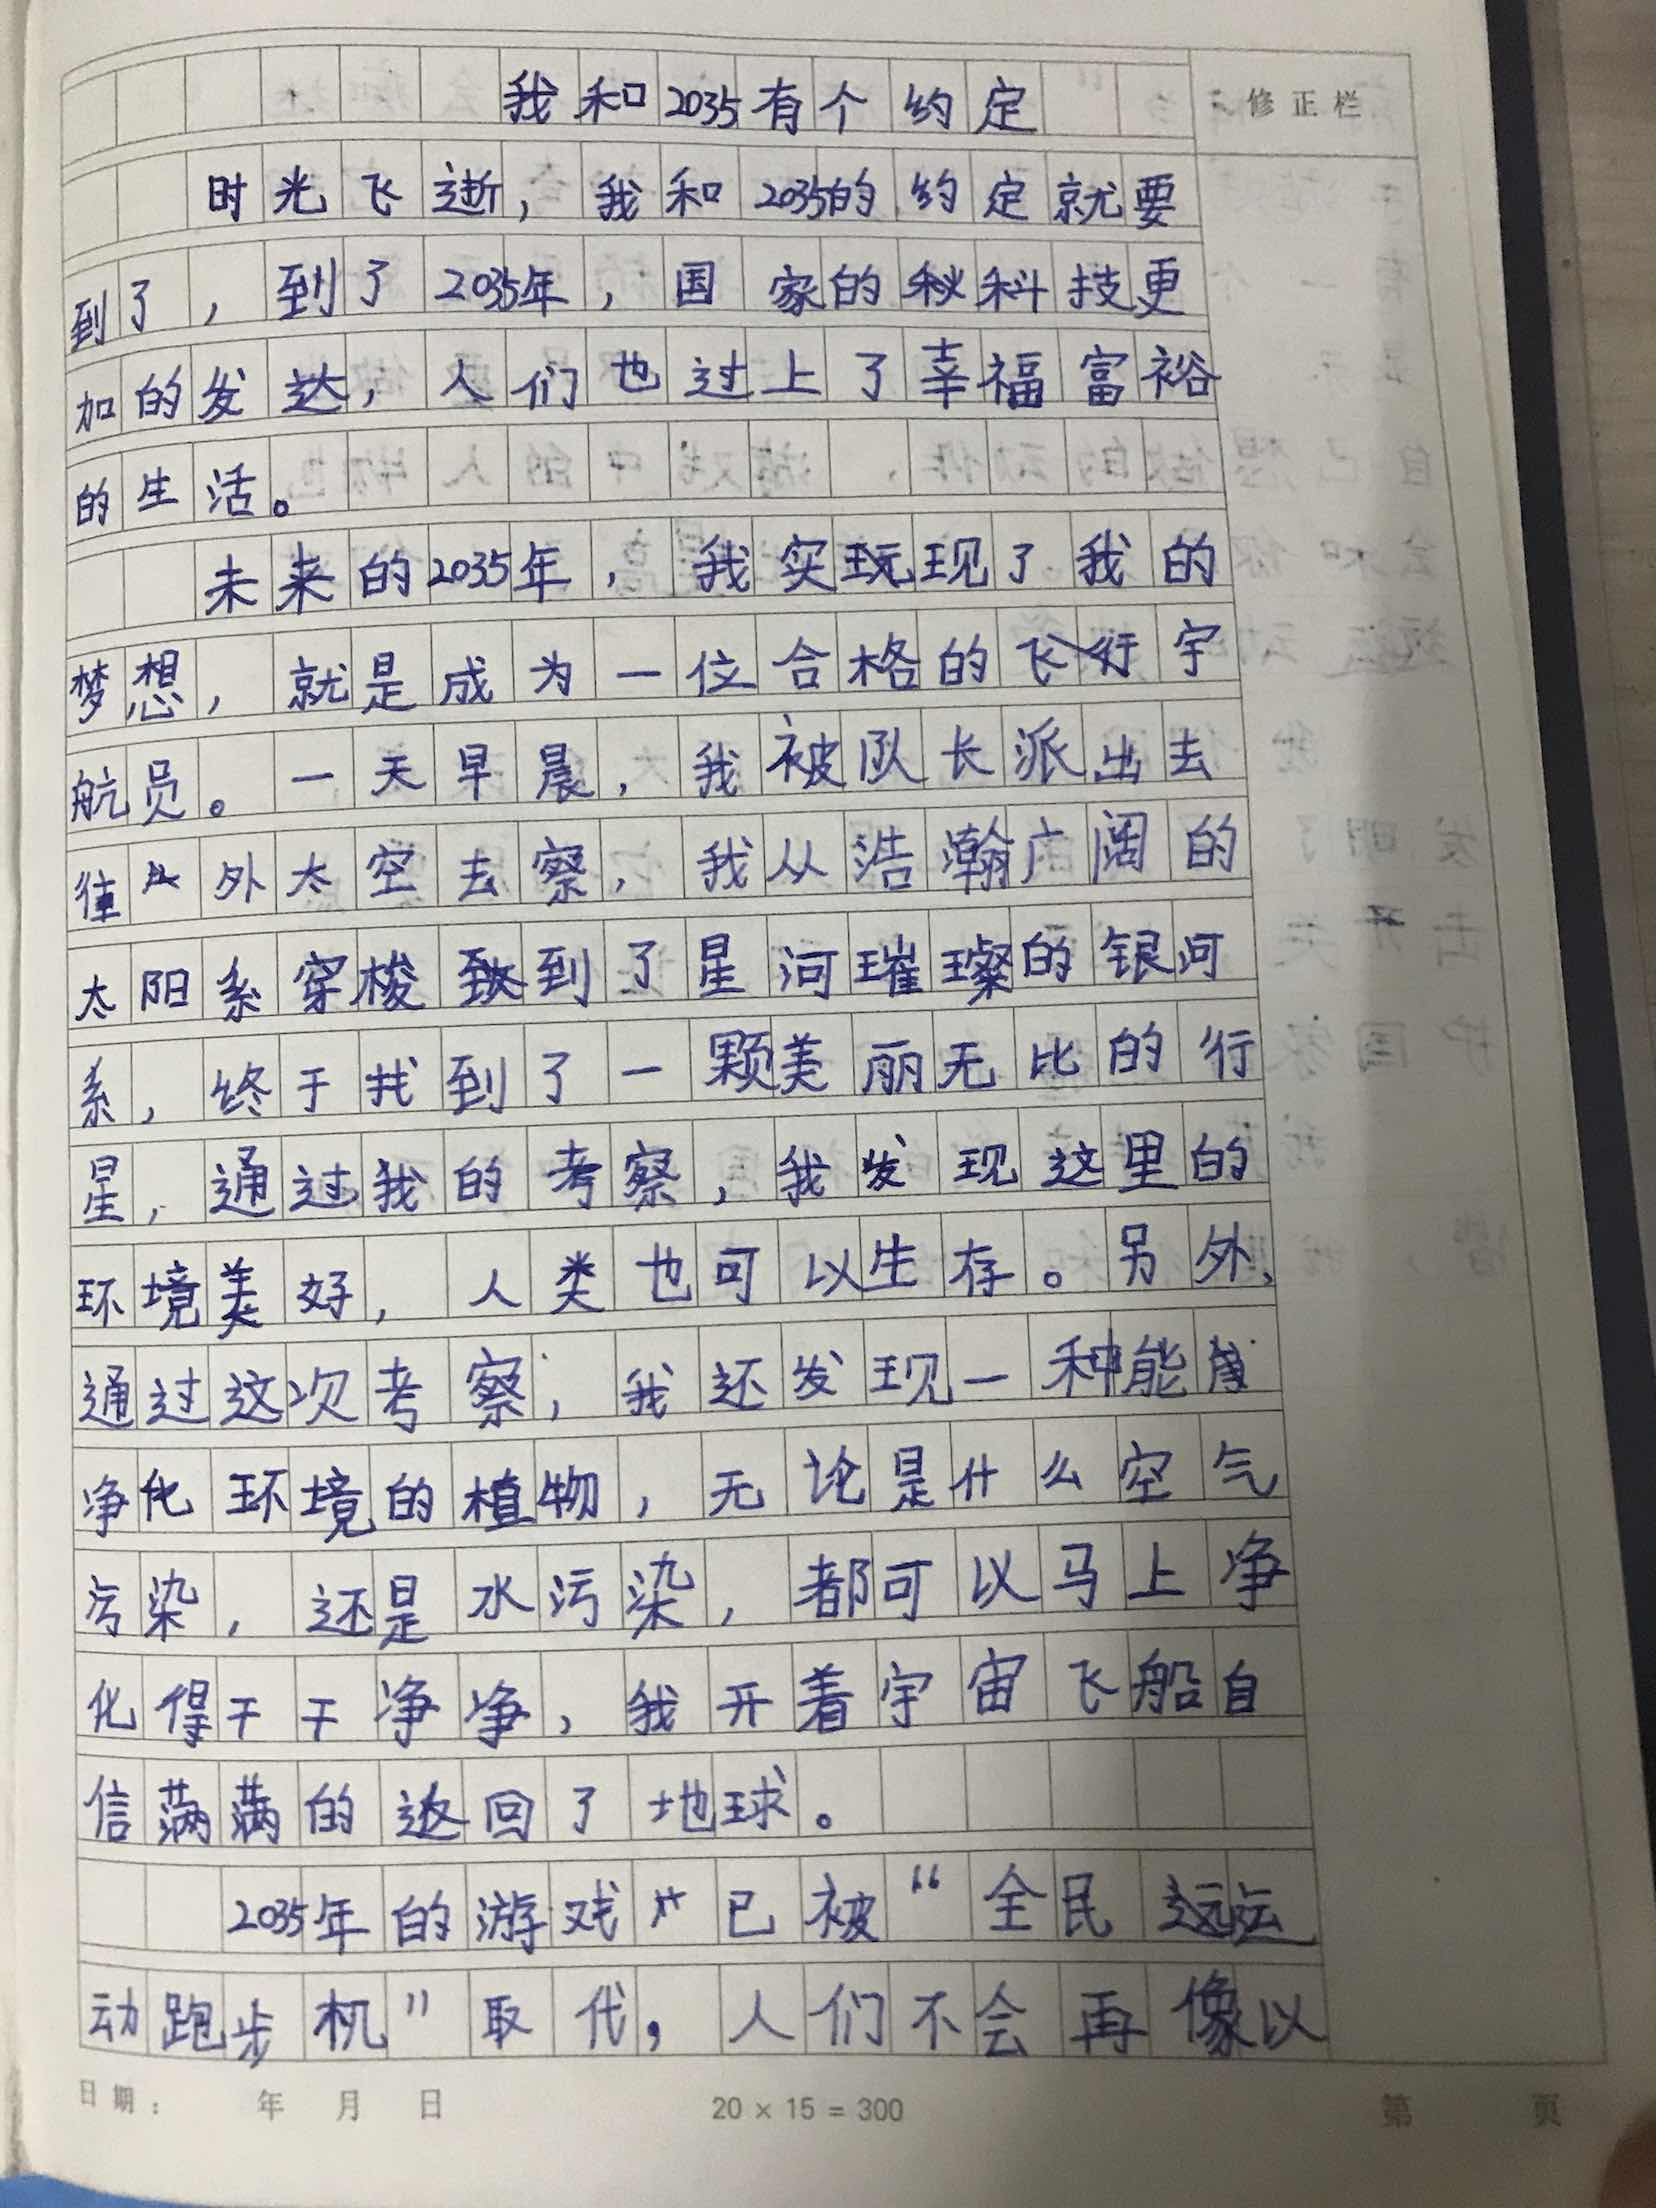 我和2035有个约定
修正栏
时光飞逝，我和2035的约定就要
到了，到了2035年，国家的科技更
加的发达，人们也过上了幸福富裕
的生活。
未来的2035年，我实现了我的
梦想，就是成为一位合格的飞行宇
航员。一天早晨，我被队长派出去
往外太空去察，我从浩瀚广阔的
太阳系穿梭到了星河璀璨的银河
系，终于找到了一颗美丽无比的行
星，通过我的考察，我发现这里的
环境美好，人类也可以生存。另外，
通过这次考察，我还发现一种能
净化环境的植物，无论是什么空气
污染，还是水污染，都可以马上净
化得干干净净，我开着宇宙飞船自
信满满的返回了地球。
2035年的游戏已被“全民运
动跑步机”取代，人们不会再像以
日期： 年 月 日 20×15=300 第 页